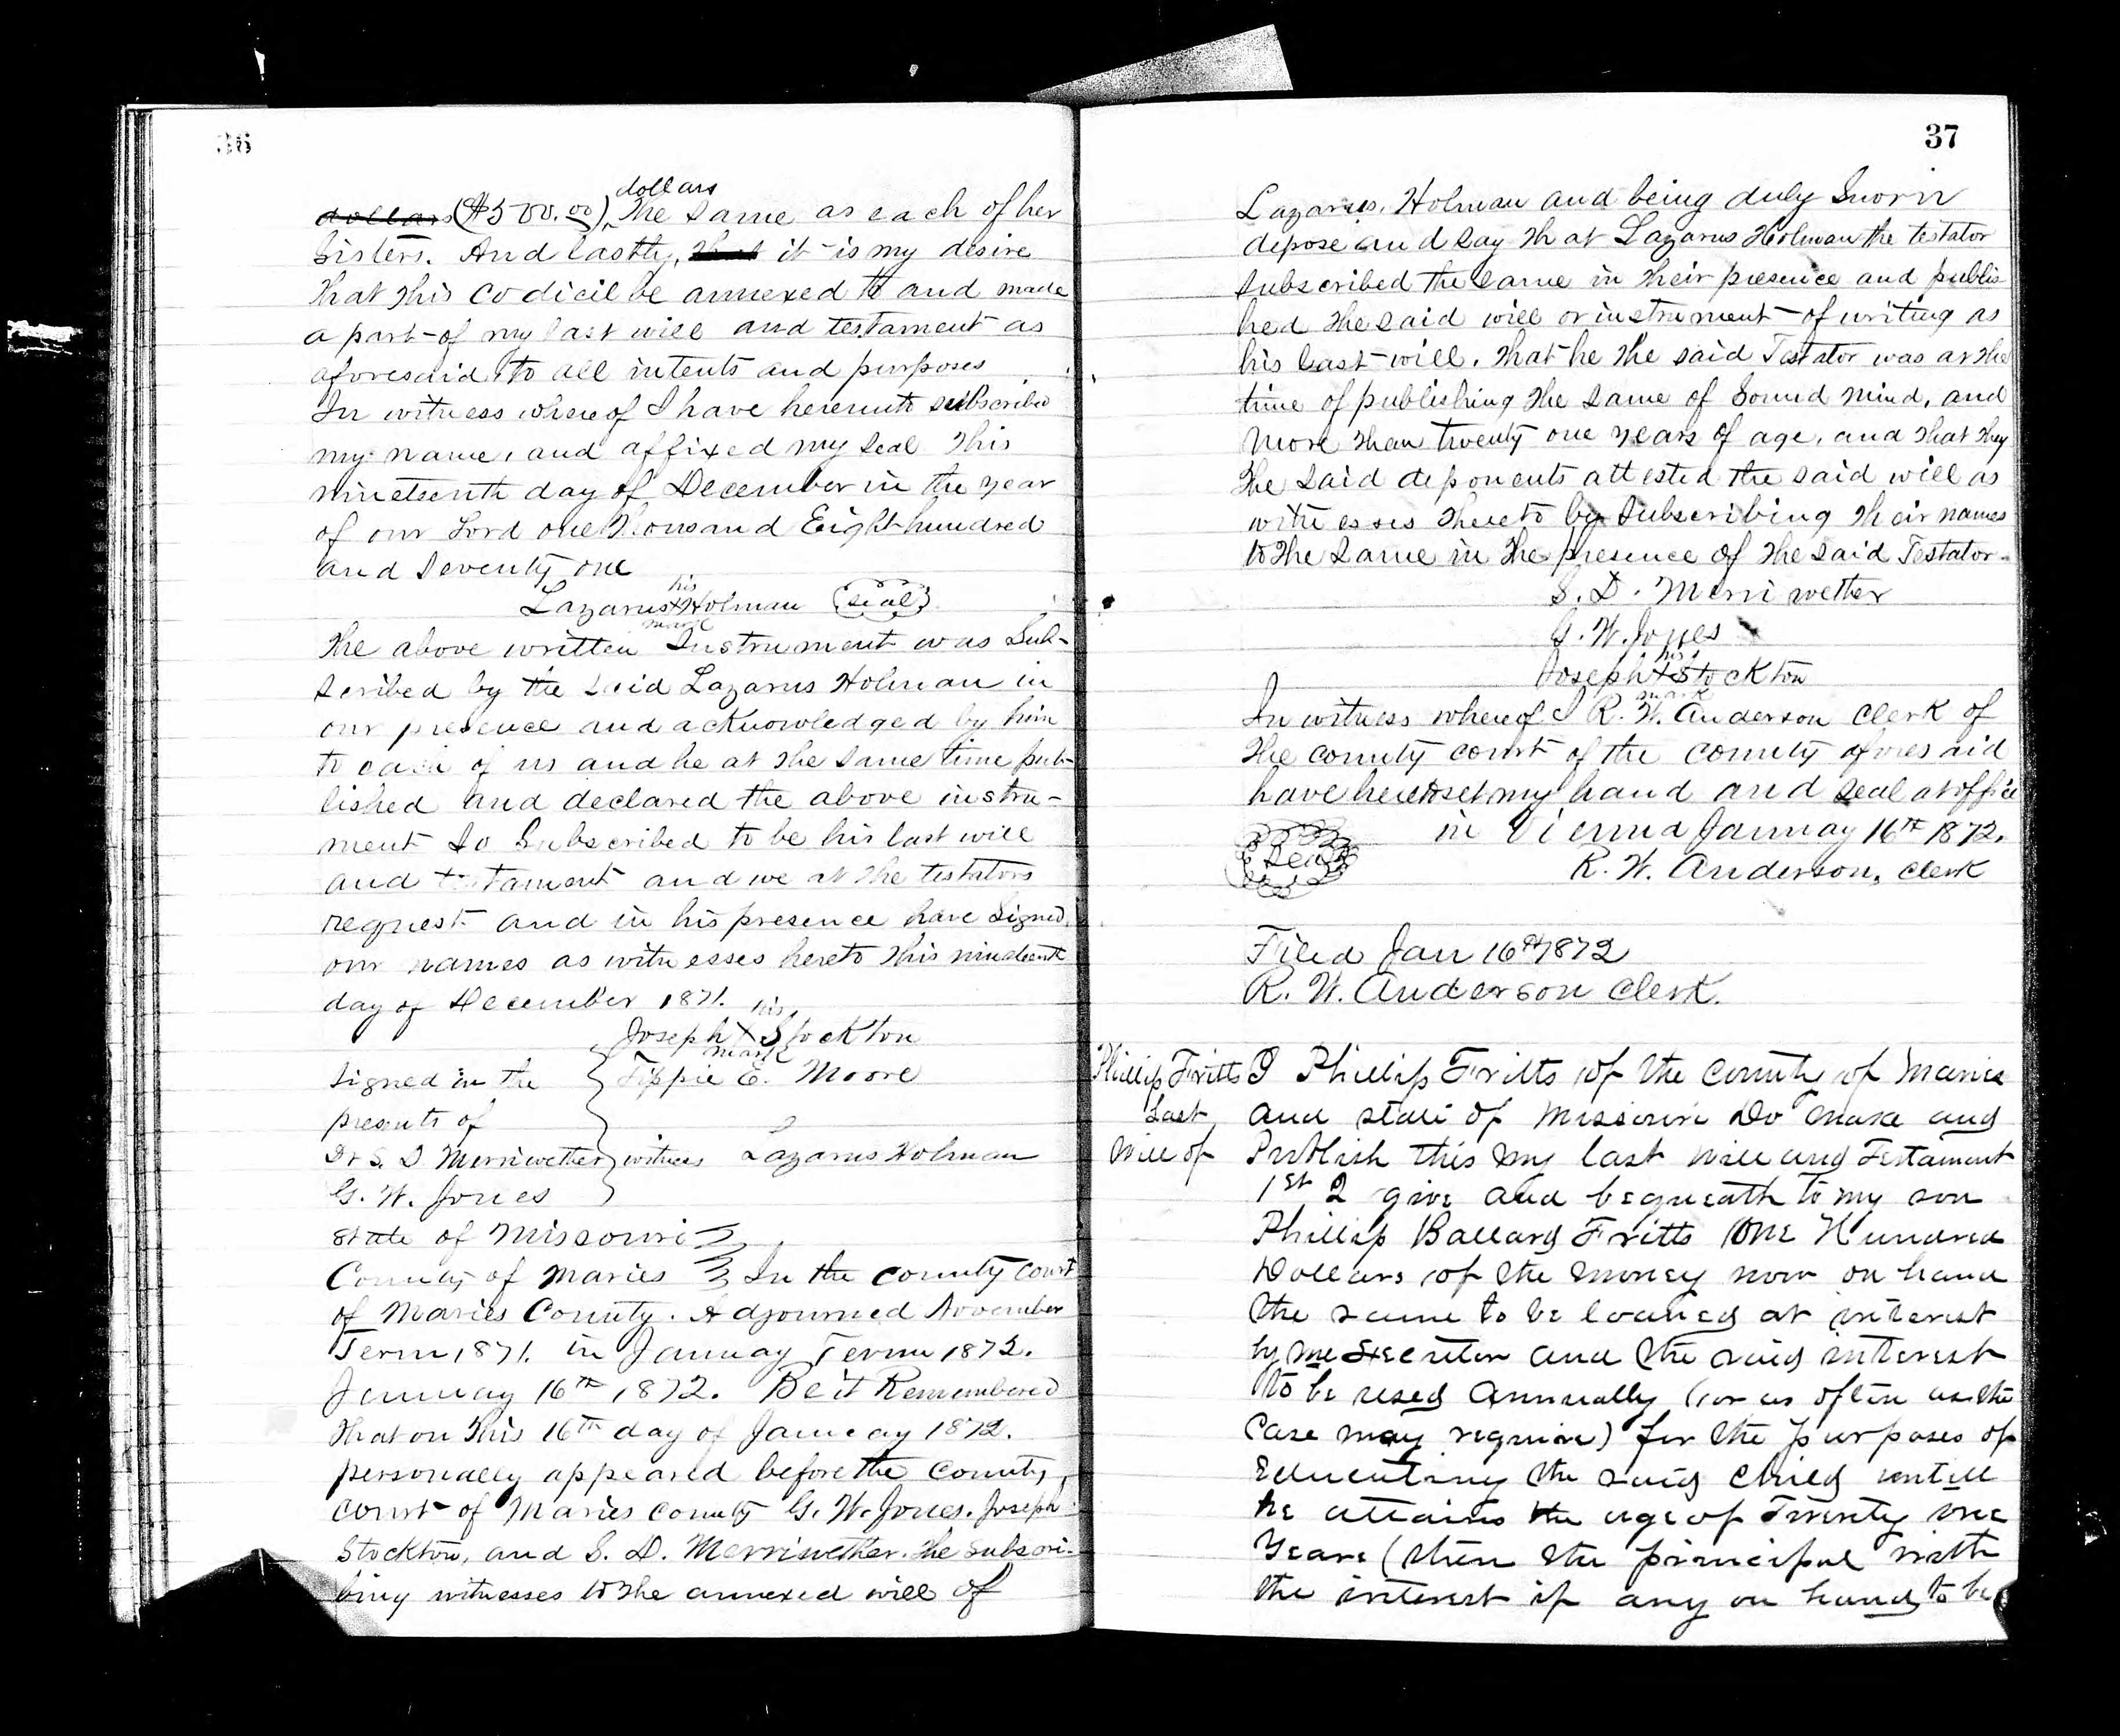 36
dollars
dollars ($500.00), The Same as each of her
Sisters. And lastly, that it is my desire
that this codicil be annexed to and made
a part of my last will and testament as
aforesaid to all intents and purposes
In witness whereof I have hereunto subscribed
my name, and affixed my seal this
nineteenth day of December in the year
of our Lord one thousand Eight hundred
and Seventy one
his
Lazarus X Holman (seal)
mark
The above written Instrument was Sub-
scribed by the said Lazarus Holman in
our presence and acknowledged by him
to each of us and he at the same time pub-
lished and declared the above instru-
ment So Subscribed to be his last will
and testament and we at the testators
request and in his presence have signed
our names as witnesses hereto this nineteenth
day of December 1871.
his
Joseph X Stockton
mark
Signed in the } Tippie E. Moore
presents of
Dr S. D Merriwether } witness Lazarus Holman
G. W. Jones
State of Missouri
County of Maries In the county court
of Maries County. Adjourned November
Term 1871. in January Term 1872.
January 16th 1872. Be it Remembered
that on this 16th day of January 1872.
personally appeared before the County
court of Maries county G. W. Jones. Joseph
Stockton, and S. D. Merriwether. The subscri-
bing witnesses to the annexed will of
37
Lazarus. Holman and being duly Sworn
depose and Say that Lazarus Holman the testator
Subscribed the same in their presence and publis-
hed the said will or instrument of writing as
his last will. that he the said Testator was at the
time of publishing the same of Sound mind, and
more than twenty one years of age, and that they
the said deponents attested the said will as
witnesses thereto by Subscribing their names
to the same in the presence of the said Testator.
S. D. Merriwether
G. W. Jones
his
Joseph X Stockton
mark
In witness whereof I R. W. Anderson Clerk of
the county court of the County aforesaid
have hereto set my hand and seal at office
Seal in Vienna January 16th 1872.
R. W. Anderson, Clerk
Filed Jan 16th 1872
R. W. Anderson Clerk.
Phillip Fritts
Last
Will of
I Phillip Fritts of the County of Maries
and state of Missouri Do make and
Publish this my last will and Testament
1st I give and bequeath to my son
Phillip Ballard Fritts One Hundred
Dollars of the money now on hand
the same to be loaned at interest
by me Executor and the said interest
to be used annually (or as often as the
Case may require) for the purposes of
Educating the said child untill
he attains the age of Twenty one
Years (then the principal with
the interest if any on hand to be